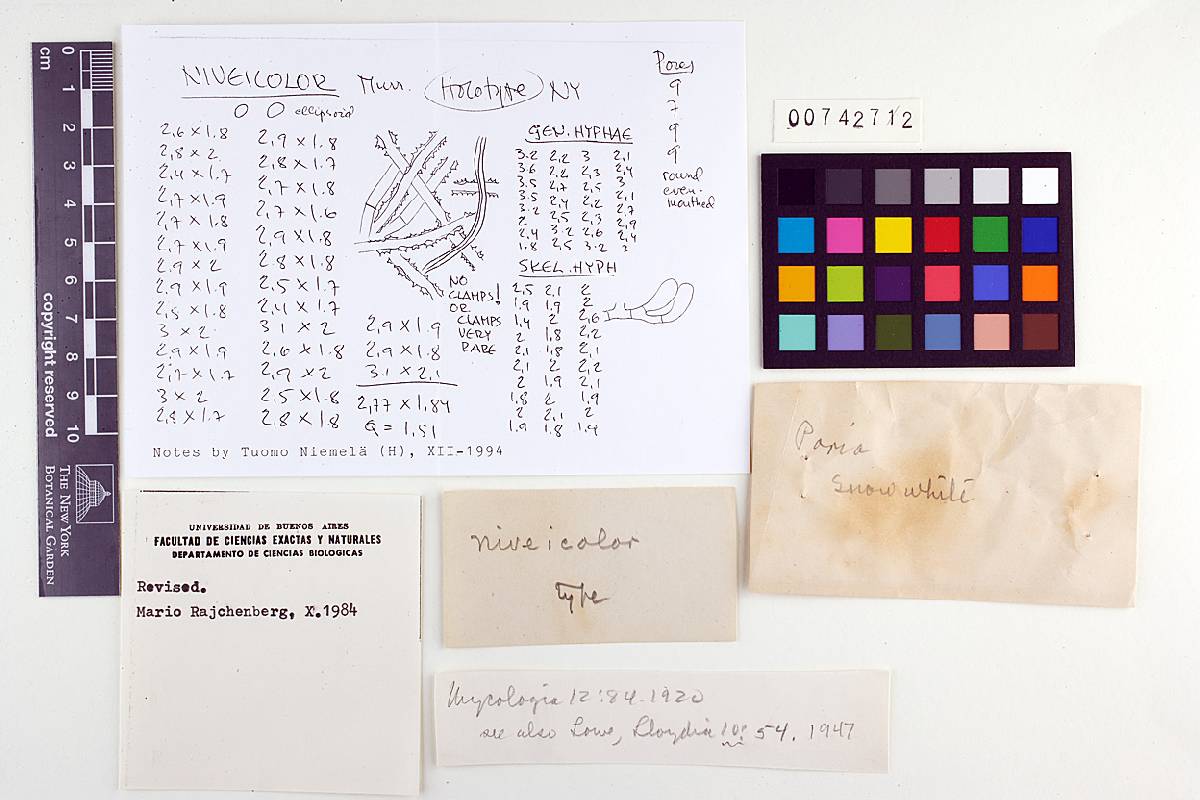 cm 0 1 2 3 4 5 6 7 8 9 10
copyright reserved
THE NEW YORK
BOTANICAL GARDEN
NIVEICOLOR Murr. Holotype NY
ellipsoid
2,6 × 1.8
2,8 × 2
2,4 × 1.7
2,7 × 1.9
2,7 × 1.8
2.7 × 1.9
2.9 × 2
2.9 × 1.9
2,5 × 1.8
3 × 2
2.9 × 1.9
2,7 × 1.7
3 × 2
2,8 × 1.7
2,9 × 1.8
2.8 × 1.7
2,7 × 1.8
2,7 × 1.6
2,9 × 1.8
2.8 × 1.8
2,5 × 1.7
2,4 × 1.7
3 1 × 2
2,6 × 1.8
2,9 × 2
2.5 × 1.8
2.8 × 1.8
2,9 × 1.9
2,9 × 1.8
3.1 × 2,1
2,77 × 1,84
Q = 1,51
NO
CLAMPS!
OR
CLAMPS
VERY
RARE
GEN. HYPHAE
3.2 2,2 3 2,1
3.6 2.2 2,3 2,4
3.5 2,7 2,5 3
3.5 2,4 2.2 2,1
3.2 2,5 2,3 2.7
2 3.2 2,6 2,9
2,4 2,5 3.2 2,4
1.8
SKEL. HYPH
2,5 2,1 2
1.9 1.9 2
1,4 2 2,6
2 1,8 2,2
2,1 1,8 2,1
2,1 2 2,2
2 1,9 2,1
1,8 2 1,9
2 2,1 2
1.9 1.8 1.9
Pores
9
7
9
9
round
even-
mouthed
Notes by Tuomo Niemelä (H), XII-1994
00742712
Poria
Snow white
UNIVERSIDAD DE BUENOS AIRES
FACULTAD DE CIENCIAS EXACTAS Y NATURALES
DEPARTAMENTO DE CIENCIAS BIOLOGICAS
Revised.
Mario Rajchenberg, X.1984
niveicolor
type
Mycologia 12:84.1920
see also Lowe, Lloydia 10: 54. 1947